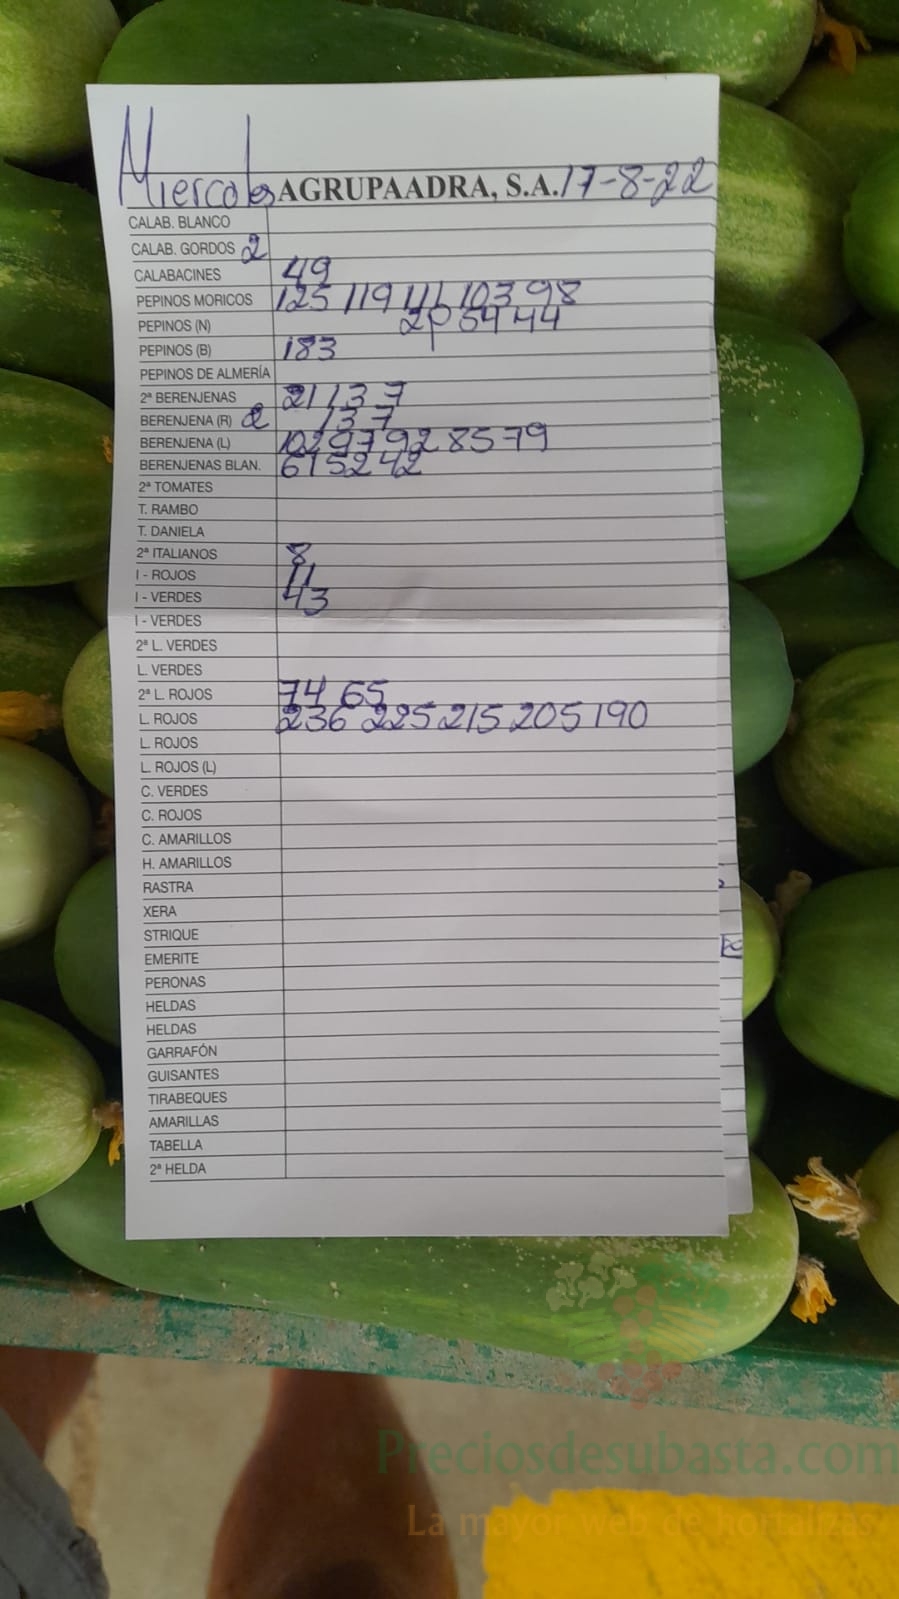 Miercoles AGRUPAADRA, S.A. 17-8-22
CALAB. BLANCO
CALAB. GORDOS 2
CALABACINES 49
PEPINOS MORICOS 125 119 111 103 98
PEPINOS (N) 2p 54 44
PEPINOS (B) 183
PEPINOS DE ALMERÍA
2ª BERENJENAS 21 13 7
BERENJENA (R) 2 13 7
BERENJENA (L) 102 97 92 85 79
BERENJENAS BLAN. 61 52 42
2ª TOMATES
T. RAMBO
T. DANIELA
2ª ITALIANOS 8
I - ROJOS 11
I - VERDES 43
I - VERDES
2ª L. VERDES
L. VERDES
2ª L. ROJOS 74 65
L. ROJOS 236 225 215 205 190
L. ROJOS
L. ROJOS (L)
C. VERDES
C. ROJOS
C. AMARILLOS
H. AMARILLOS
RASTRA
XERA
STRIQUE
EMERITE
PERONAS
HELDAS
HELDAS
GARRAFÓN
GUISANTES
TIRABEQUES
AMARILLAS
TABELLA
2ª HELDA
Preciosdesubasta.com
La mayor web de hortalizas